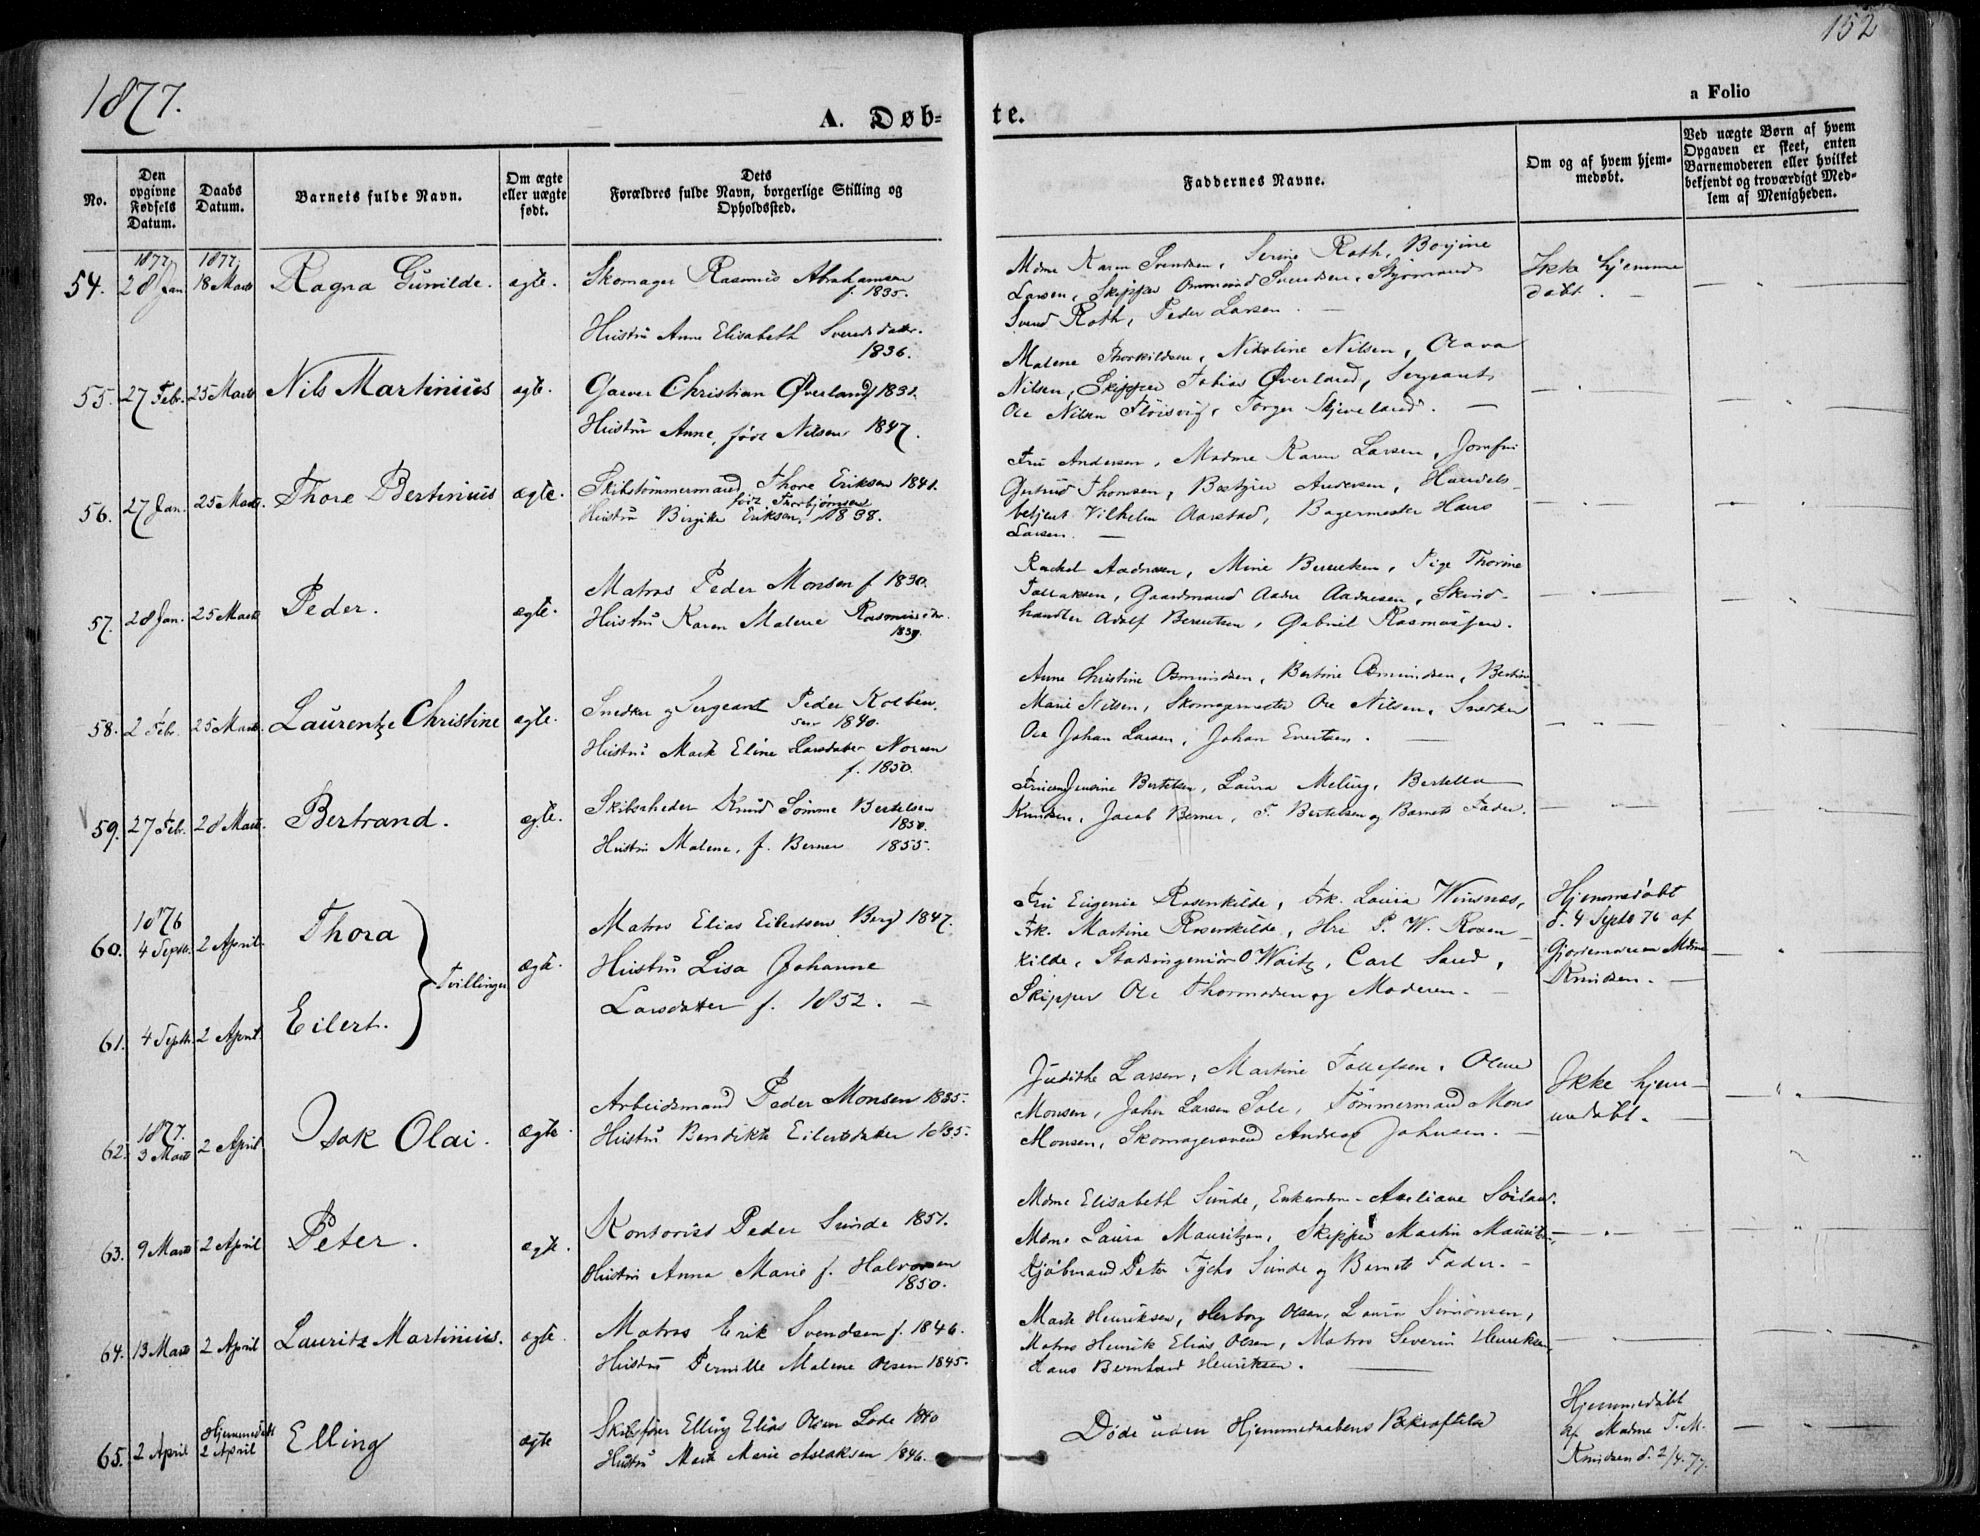 152
1877.
a Folio
A. Døb-
te.
No.
Den opgivne Fødsels Datum.
Daabs Datum.
Barnets fulde Navn.
Om ægte eller uægte født.
Dets Forældres fulde Navn, borgerlige Stilling og Opholdssted.
Faddernes Navne.
Om og af hvem hjemmedøbt.
Ved uægte Børn af hvem Opgaven er skeet, enten Barnemoderen eller hvilket bekjendt og troværdigt Medlem af Menigheden.
54. 1877 28 Jan. 1877 18 Marts Ragna Gunilde. ægte.
Skomager Rasmus Abrahamsen
f. 1835.
Hustru Anne Elisabeth Svendsdatter.
1836.
Mdme Karen Svendsen, Serine Roth, Borjine
Larsen, Skipper Svendsen, Styrmand
Svend Roth, Peder Larsen.
Ikke hjemme
døbt. —
55. 27 Febr. 25 Marts Nils Martinius ægte.
Garver Christian Øverland 1831.
Hustru Anne, født Nilsen 1847.
Malene Thorkildsen, Nikoline Nilsen, Olava
Nilsen, Skipper Tobias Øverland, Sergeant
Ole Nilsen Floisvig, Torger Skjeveland. —
56. 27 Jan. 25 Marts Thore Bertinius ægte.
Skibstømmermand Thore Eriksen 1841.
født Thorbjørnsen
Hustru Birgithe Eriksen, 1838.
Fru Andersen, Madme Karen Larsen, Jomfru
Gertrud Thomsen, Andersen, Handels-
betjent Vilhelm Aarstad, Bagermester Hans
Larsen. —
57. 28 Jan. 25 Marts Peder. ægte.
Matros Peder Monsen f 1830.
Hustru Karen Malene Rasmusdtr.
1839.
Rachel Aadnesen, Mine Berentsen, Pige Thorine
Tollaksen, Gaardmand Aadne Aadnesen, Skind-
handler Adolf Berentsen, Gabriel Rasmussen.
58. 2 Febr. 25 Marts Laurentze Christine ægte.
Snedker og Sergeant Peder Kolben-
sen 1840.
Hustru Marte Eline Larsdatter Norem
f. 1850.
Anne Christine Osmundsen, Bertine Osmundsen,
Marie Nilsen, Skomagermester Ole Nilsen, Snedker
Ole Johan Larsen, Johan Evertsen. —
59. 27 Feb. 28 Marts. Bertrand. ægte.
Skibsrheder Knud Sømme Bertelsen
1850.
Hustru Malene, f. Berner 1855.
Fruerne Jensine Bertelsen, Laura Meling, Bertella
Knudsen, Jacob Berner, T. Bertelsen og Barnets Fader.
60. 1876 4 Septb. 2 April. Thora
Tvillinger ægte.
Matros Elias Eilertsen Berg 1847.
Hustru Lisa Johanne
Larsdatter f. 1852. —
Fru Eugenie Rosenkilde, Frk. Laura Winsnes,
Frk. Martine Rosenkilde, Hrr P. W. Rosen-
kilde, Stadsingeniør O Waitz, Carl Sand,
Skipper Ole Thormodsen og Moderen. —
Hjemmedøbt
d. 4 Septb 76 af
Gjordemoderen Mdme
Knudsen. —
61. 4 Septb. 2 April Eilert.
62. 1877. 3 Marts 2 April Isak Olai. ægte.
Arbeidsmand Peder Monsen 1835.
Hustru Bendikte Eilertsdatter 1835.
Judithe Larsen, Martine Tollefsen, Olene
Monsen, John Larsen Sole, Tømmermand Mons
Monsen, Skomagersvend Andreas Johnsen. —
Ikke hjem-
medøbt. —
63. 9 Marts 2 April Peter. ægte.
Kontorist Peder Sunde 1851.
Hustru Anna Marie f. Halvorsen
1850.
Mdme Elisabeth Sunde, Enkemdm. Axeliane Soiland.
Mdme Laura Mauritzen, Skipper Martin Mauritzen,
Kjøbmand Peter Tycho Sunde og Barnets Fader. —
64. 13 Marts 2 April Lauritz Martinius. ægte.
Matros Erik Svendsen f. 1846.
Hustru Pernille Malene Olsen 1845.
Marte Henriksen, Herborg Olsen, Laura Simonsen,
Matros Henrik Elias Olsen, Matros Severin Henriksen,
Hans Bernhard Henriksen. —
65. 2 April Hjemmedøbt 2 April Elling ægte
Skibsfører Elling Elias Olsen Lode 1840
Hustru Marte Marie Aslaksen 1846.
Døde uden Hjemmedaabens Bekræftelse
Hjemmedøbt
af Madme T. M.
Knudsen d. 2/4. 77.